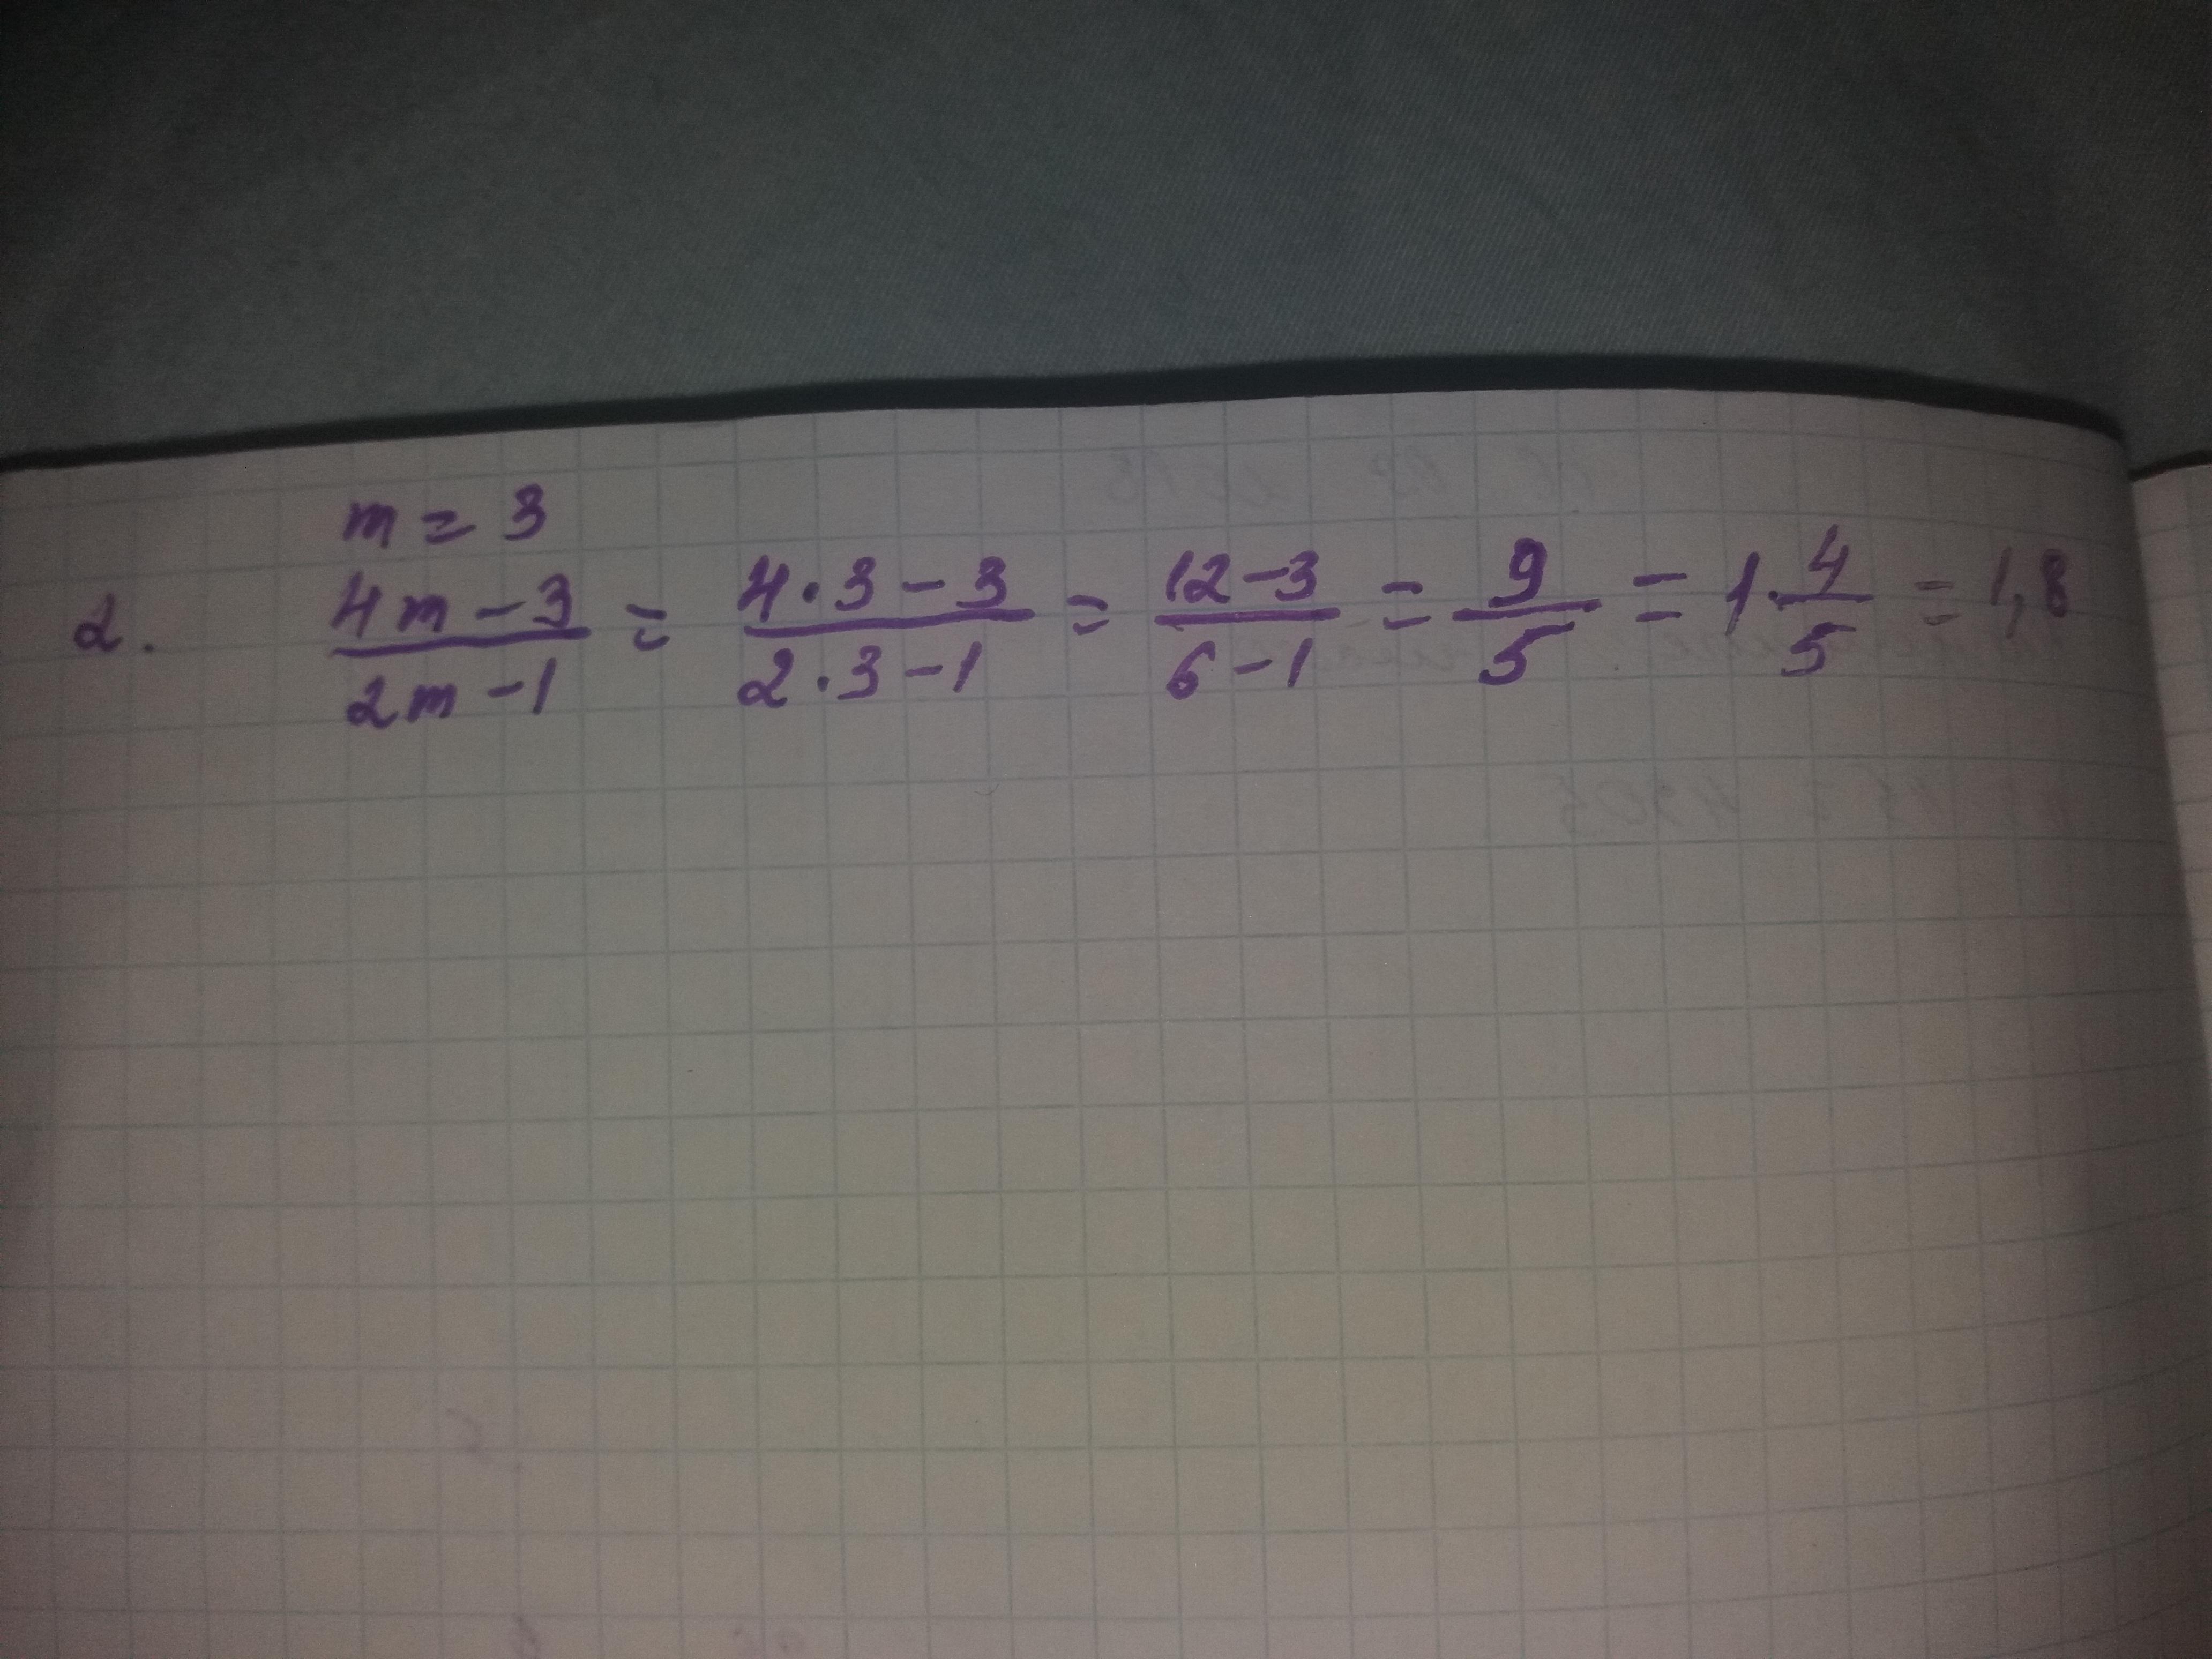 m = 3
2. (4m - 3)/(2m - 1) = (4·3 - 3)/(2·3 - 1) = (12 - 3)/(6 - 1) = 9/5 = 1·4/5 = 1,8